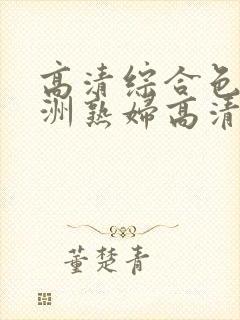 高清综合色
洲熟妇高清
董楚青